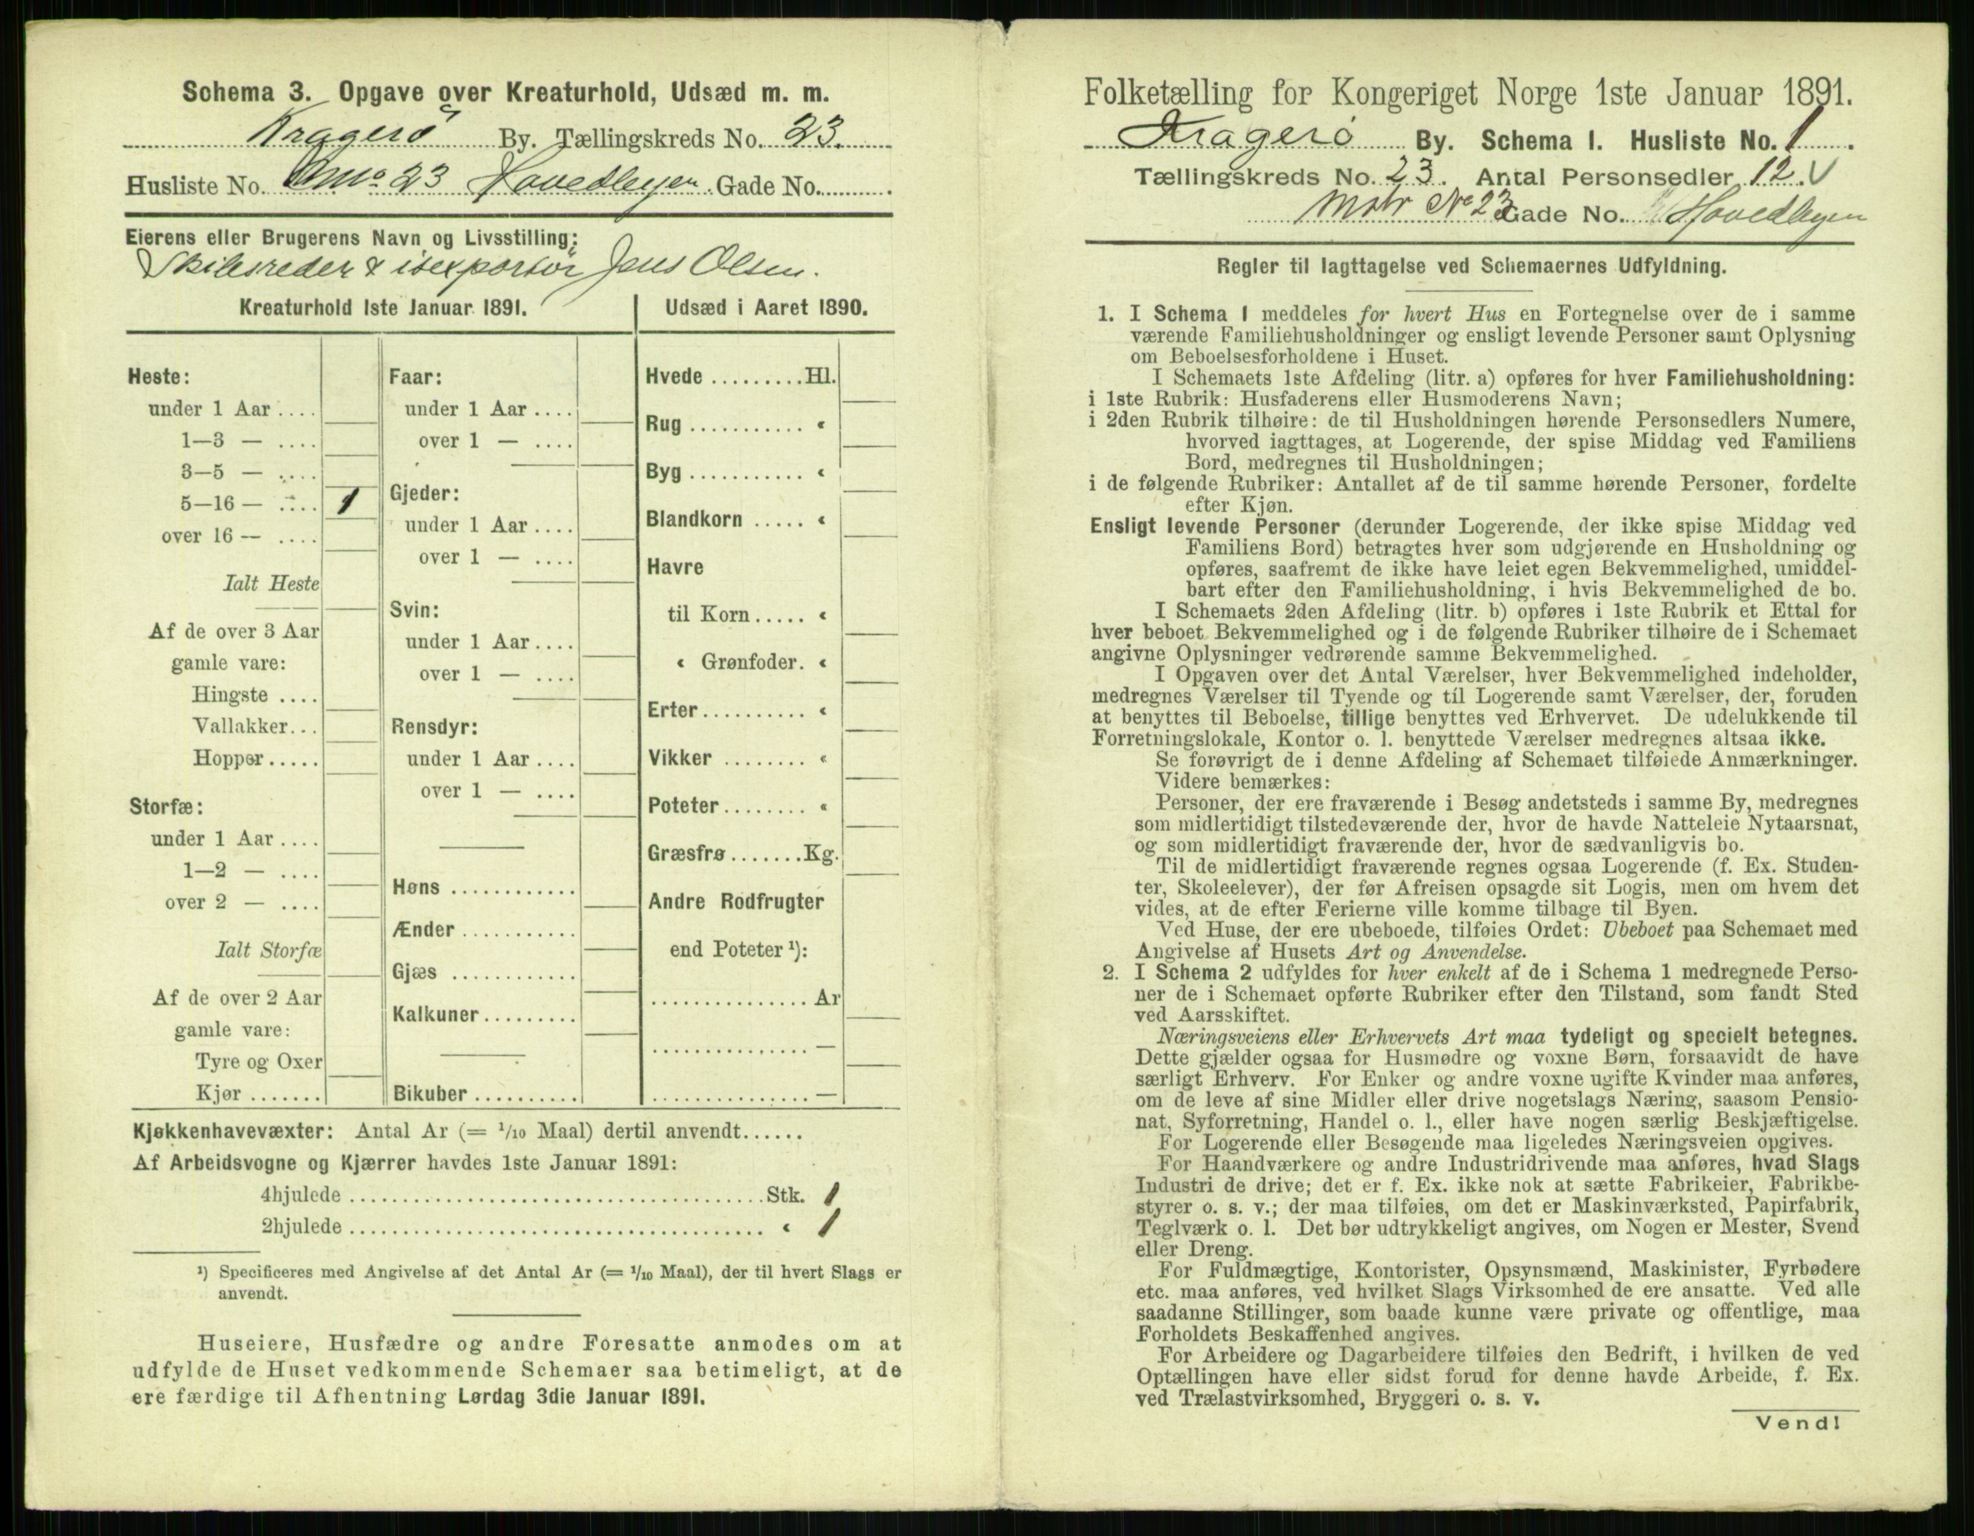 Schema 3. Opgave over Kreaturhold, Udsæd m. m.
Kragerö By. Tællingskreds No. 23.
Husliste No. 23 Hovedleyen Gade No.
Eierens eller Brugerens Navn og Livsstilling:
Skibsreder & isexportör Jens Olsen.
Kreaturhold 1ste Januar 1891.
Heste:
under 1 Aar ....
1—3 — ....
3—5 — ....
5—16 — .... 1
over 16 — ....
Ialt Heste
Af de over 3 Aar
gamle vare:
Hingste ....
Vallakker...
Hopper.....
Storfæ:
under 1 Aar ....
1—2 — ....
over 2 — ....
Ialt Storfæ
Af de over 2 Aar
gamle vare:
Tyre og Oxer
Kjør .......
Faar:
under 1 Aar ....
over 1 — ....
Gjeder:
under 1 Aar ....
over 1 — ....
Svin:
under 1 Aar ....
over 1 — ....
Rensdyr:
under 1 Aar ....
over 1 — ....
Høns ............
Ænder ...........
Gjæs ............
Kalkuner.........
Bikuber ..........
Udsæd i Aaret 1890.
Hvede .........Hl.
Rug ........... «
Byg ........... «
Blandkorn ..... «
Havre
til Korn..... «
« Grønfoder. «
Erter.......... «
Vikker ........ «
Poteter........ «
Græsfrø.......Kg.
Andre Rodfrugter
end Poteter ¹):
............... Ar
............... —
............... —
Kjøkkenhavevæxter: Antal Ar (= 1/10 Maal) dertil anvendt......
Af Arbeidsvogne og Kjærrer havdes 1ste Januar 1891:
4hjulede ........................................ Stk. 1
2hjulede ........................................ « 1
¹) Specificeres med Angivelse af det Antal Ar (= 1/10 Maal), der til hvert Slags er
anvendt.
Huseiere, Husfædre og andre Foresatte anmodes om at
udfylde de Huset vedkommende Schemaer saa betimeligt, at de
ere færdige til Afhentning Lørdag 3die Januar 1891.
Folketælling for Kongeriget Norge 1ste Januar 1891.
Kragerø By. Schema 1. Husliste No. 1.
Tællingskreds No. 23. Antal Personsedler 12. V
Matr No 23 Gade No. Hovedleyen
Regler til Iagttagelse ved Schemaernes Udfyldning.
1. I Schema 1 meddeles for hvert Hus en Fortegnelse over de i samme
værende Familiehusholdninger og ensligt levende Personer samt Oplysning
om Beboelsesforholdene i Huset.
I Schemaets 1ste Afdeling (litr. a) opføres for hver Familiehusholdning:
i 1ste Rubrik: Husfaderens eller Husmoderens Navn;
i 2den Rubrik tilhøire: de til Husholdningen hørende Personsedlers Numere,
hvorved iagttages, at Logerende, der spise Middag ved Familiens
Bord, medregnes til Husholdningen;
i de følgende Rubriker: Antallet af de til samme hørende Personer, fordelte
efter Kjøn.
Ensligt levende Personer (derunder Logerende, der ikke spise Middag ved
Familiens Bord) betragtes hver som udgjørende en Husholdning og
opføres, saafremt de ikke have leiet egen Bekvemmelighed, umiddel-
bart efter den Familiehusholdning, i hvis Bekvemmelighed de bo.
I Schemaets 2den Afdeling (litr. b) opføres i 1ste Rubrik et Ettal for
hver beboet Bekvemmelighed og i de følgende Rubriker tilhøire de i Schemaet
angivne Oplysninger vedrørende samme Bekvemmelighed.
I Opgaven over det Antal Værelser, hver Bekvemmelighed indeholder,
medregnes Værelser til Tyende og til Logerende samt Værelser, der, foruden
at benyttes til Beboelse, tillige benyttes ved Erhvervet. De udelukkende til
Forretningslokale, Kontor o. l. benyttede Værelser medregnes altsaa ikke.
Se forøvrigt de i denne Afdeling af Schemaet tilføiede Anmærkninger.
Videre bemærkes:
Personer, der ere fraværende i Besøg andetsteds i samme By, medregnes
som midlertidigt tilstedeværende der, hvor de havde Natteleie Nytaarsnat,
og som midlertidigt fraværende der, hvor de sædvanligvis bo.
Til de midlertidigt fraværende regnes ogsaa Logerende (f. Ex. Studen-
ter, Skoleelever), der før Afreisen opsagde sit Logis, men om hvem det
vides, at de efter Ferierne ville komme tilbage til Byen.
Ved Huse, der ere ubeboede, tilføies Ordet: Ubeboet paa Schemaet med
Angivelse af Husets Art og Anvendelse.
2. I Schema 2 udfyldes for hver enkelt af de i Schema 1 medregnede Perso-
ner de i Schemaet opførte Rubriker efter den Tilstand, som fandt Sted
ved Aarsskiftet.
Næringsveiens eller Erhvervets Art maa tydeligt og specielt betegnes.
Dette gjælder ogsaa for Husmødre og voxne Børn, forsaavidt de have
særligt Erhverv. For Enker og andre voxne ugifte Kvinder maa anføres,
om de leve af sine Midler eller drive nogetslags Næring, saasom Pensio-
nat, Syforretning, Handel o. l., eller have nogen særlig Beskjæftigelse.
For Logerende eller Besøgende maa ligeledes Næringsveien opgives.
For Haandværkere og andre Industridrivende maa anføres, hvad Slags
Industri de drive; det er f. Ex. ikke nok at sætte Fabrikeier, Fabrikbe-
styrer o. s. v.; der maa tilføies, om det er Maskinværksted, Papirfabrik,
Teglværk o. l. Det bør udtrykkeligt angives, om Nogen er Mester, Svend
eller Dreng.
For Fuldmægtige, Kontorister, Opsynsmænd, Maskinister, Fyrbødere
etc. maa anføres, ved hvilket Slags Virksomhed de ere ansatte. Ved alle
saadanne Stillinger, som baade kunne være private og offentlige, maa
Forholdets Beskaffenhed angives.
For Arbeidere og Dagarbeidere tilføies den Bedrift, i hvilken de ved
Optællingen have eller sidst forud for denne havde Arbeide, f. Ex.
ved Trælastvirksomhed, Bryggeri o. s. v.
Vend!